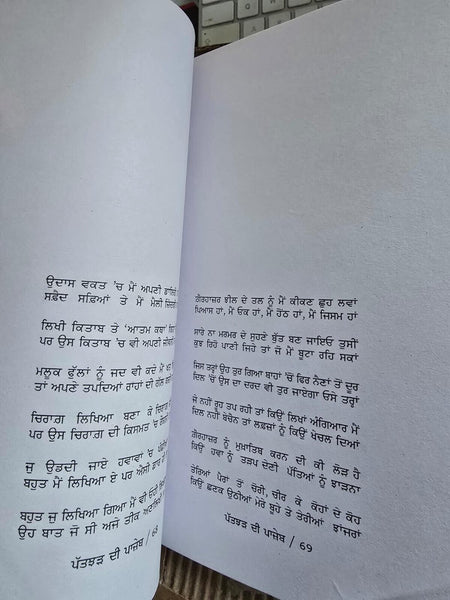 ਉਦਾਸ ਵਕਤ 'ਚ ਮੈਂ ਅਪਣੀ
ਸਫ਼ੇਦ ਸਫ਼ਿਆਂ ਤੇ ਮੈਂ ਮੈਲੀ
ਲਿਖੀ ਕਿਤਾਬ ਤੇ 'ਆਤਮ ਕਥਾ'
ਪਰ ਉਸ ਕਿਤਾਬ 'ਚ ਵੀ ਅਪਣੀ
ਮਲੂਕ ਫੁੱਲਾਂ ਨੂੰ ਜਦ ਵੀ ਕਦੇ ਮੈਂ
ਤਾਂ ਅਪਣੇ ਤਪਦਿਆਂ ਰਾਹਾਂ ਦੀ ਗੱਲ
ਚਿਰਾਗ਼ ਲਿਖਿਆ ਬਣਾ ਕੇ
ਪਰ ਉਸ ਚਿਰਾਗ਼ ਦੀ ਕਿਸਮਤ 'ਚ
ਜੁ ਉਡਦੀ ਜਾਏ ਹਵਾਵਾਂ 'ਚ
ਬਹੁਤ ਮੈਂ ਲਿਖਿਆ ਏ ਪਰ ਐਸੀ
ਬਹੁਤ ਜੁ ਲਿਖਿਆ ਗਿਆ ਮੈਂ ਵੀ
ਉਹ ਬਾਤ ਜੋ ਸੀ ਅਜੇ ਤੀਕ
ਪੱਤਝੜ ਦੀ ਪਾਜ਼ੇਬ / 68
ਗ਼ੈਰਹਾਜ਼ਰ ਝੀਲ ਦੇ ਤਲ ਨੂੰ ਮੈਂ ਕੀਕਣ ਛੂਹ ਲਵਾਂ
ਪਿਆਸ ਹਾਂ, ਮੈਂ ਓਕ ਹਾਂ, ਮੈਂ ਹੋਂਠ ਹਾਂ, ਮੈਂ ਜਿਸਮ ਹਾਂ
ਸਾਰੇ ਨਾ ਮਰਮਰ ਦੇ ਸੁਹਣੇ ਬੁੱਤ ਬਣ ਜਾਇਓ ਤੁਸੀਂ
ਕੁਝ ਰਿਹੋ ਪਾਣੀ ਜਿਹੇ ਤਾਂ ਜੋ ਮੈਂ ਬੂਟਾ ਰਹਿ ਸਕਾਂ
ਜਿਸ ਤਰ੍ਹਾਂ ਉਹ ਤੁਰ ਗਿਆ ਬਾਹਾਂ 'ਚੋਂ ਫਿਰ ਨੈਣਾਂ ਤੋਂ ਦੂਰ
ਦਿਲ 'ਚੋਂ ਉਸ ਦਾ ਦਰਦ ਵੀ ਤੁਰ ਜਾਏਗਾ ਓਸੇ ਤਰ੍ਹਾਂ
ਜੋ ਨਹੀਂ ਰੂਹ ਤਪ ਰਹੀ ਤਾਂ ਕਿਉਂ ਲਿਖਾਂ ਅੰਗਿਆਰ ਮੈਂ
ਦਿਲ ਨਹੀਂ ਬੇਚੈਨ ਤਾਂ ਲਫ਼ਜ਼ਾਂ ਨੂੰ ਕਿਉਂ ਖੇਚਲ ਦਿਆਂ
ਗ਼ੈਰਹਾਜ਼ਰ ਨੂੰ ਮੁਖ਼ਾਤਿਬ ਕਰਨ ਦੀ ਕੀ ਲੋੜ ਹੈ
ਕਿਉਂ ਹਵਾ ਨੂੰ ਤੜਪ ਦੇਣੀ ਪੱਤਿਆਂ ਨੂੰ ਝਾੜਨਾ
ਤੇਰਿਆਂ ਪੈਰਾਂ ਤੋਂ ਚੋਰੀ, ਚੀਰ ਕੇ ਕੋਹਾਂ ਦੇ ਕੋਹ
ਕਿਉਂ ਛਣਕ ਉਠੀਆਂ ਮੇਰੇ ਬੂਹੇ ਤੇ ਤੇਰੀਆਂ ਝਾਂਜਰਾਂ
ਪੱਤਝੜ ਦੀ ਪਾਜ਼ੇਬ / 69